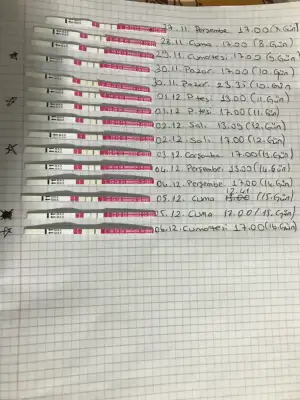 27.11. Perşembe 17.00 (7.Gün)
28.11. Cuma 17.00 (8.Gün)
29.11. Cumartesi 17.00 (9.Gün)
30.11. Pazar 17.00 (10.Gün)
30.11. Pazar 23:35 (10.Gün
01.12. P.tesi 13.00 (11.Gün)
01.12 P.tesi 17.00 (11.Gün)
02.12. Salı 13.05 (12.Gün)
02.12. Salı 17.00 (12.Gün)
03.12 Çarşamba 17.00 (13.Gün)
04.12. Perşembe 13.00 (14.Gün)
04.12. Perşembe 17.00 (14.Gün)
12.41
05.12. Cuma (15.Gün)
05.12. Cuma 17.00 (15.Gün)
06.12. Cumartesi 17.00 (16.Gün)